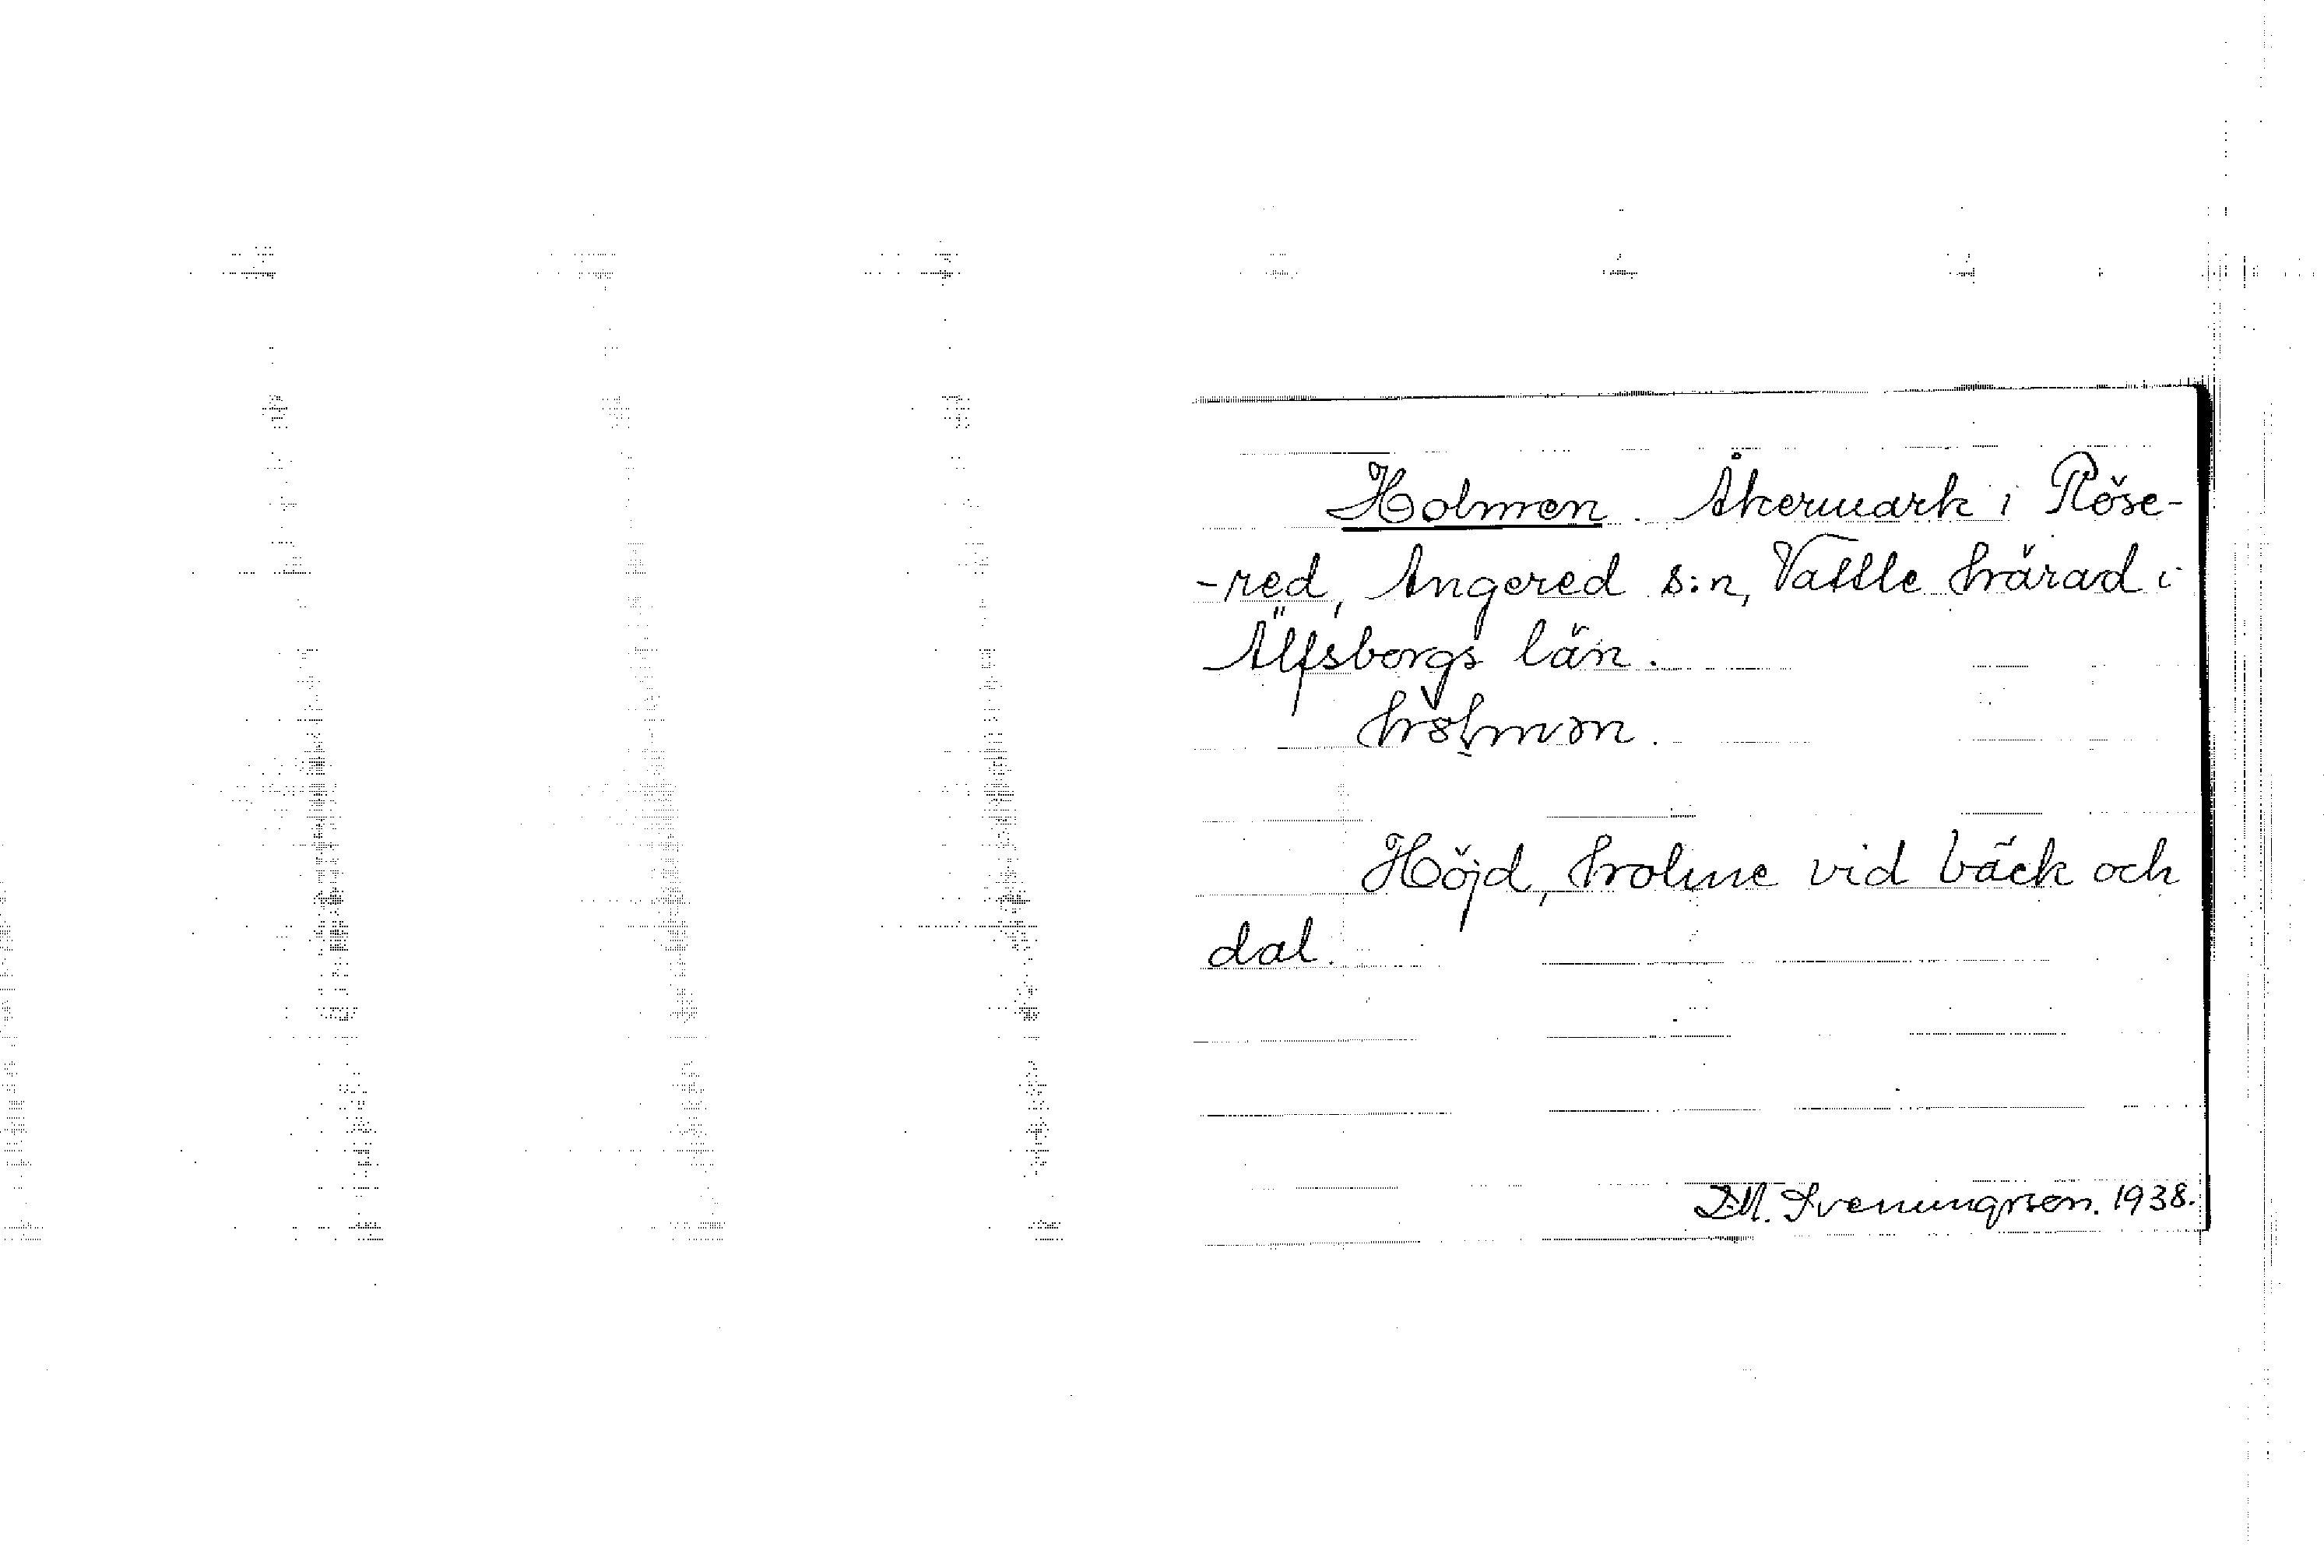 Holmen. Åkermark i Röse-
-red, Angered s:n, Vättle härad i
Älfsborgs län.
Höjd, holme vid bäck och
dal.
D.M. Svenungsson. 1938.